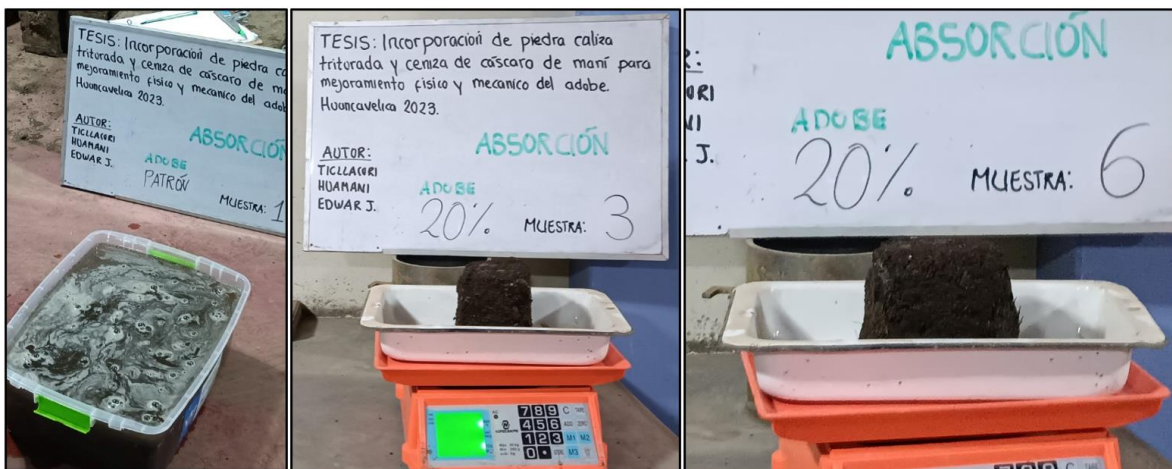 TESIS: Incorporación de piedra ca
triturada y ceniza de cáscara de m
mejoramiento físico y mecanico del adob
Huancavelica 2023.
AUTOR:
TICLLACURI
HUAMANI
EDWAR J.
ABSORCIÓN
ADOBE
PATRÓN
MUESTRA: 1
TESIS: Incorporación de piedra caliza
triturada y ceniza de cáscara de maní para
mejoramiento físico y mecanico del adobe.
Huancavelica 2023.
AUTOR:
TICLLACURI
HUAMANI
EDWAR J.
ABSORCIÓN
ADOBE
20%
MUESTRA: 3
7 8 9 C
4 5 6
1 2 3 M1 M2
0 • M3
R:
URI
NI
J.
ABSORCIÓN
ADOBE
20%
MUESTRA: 6